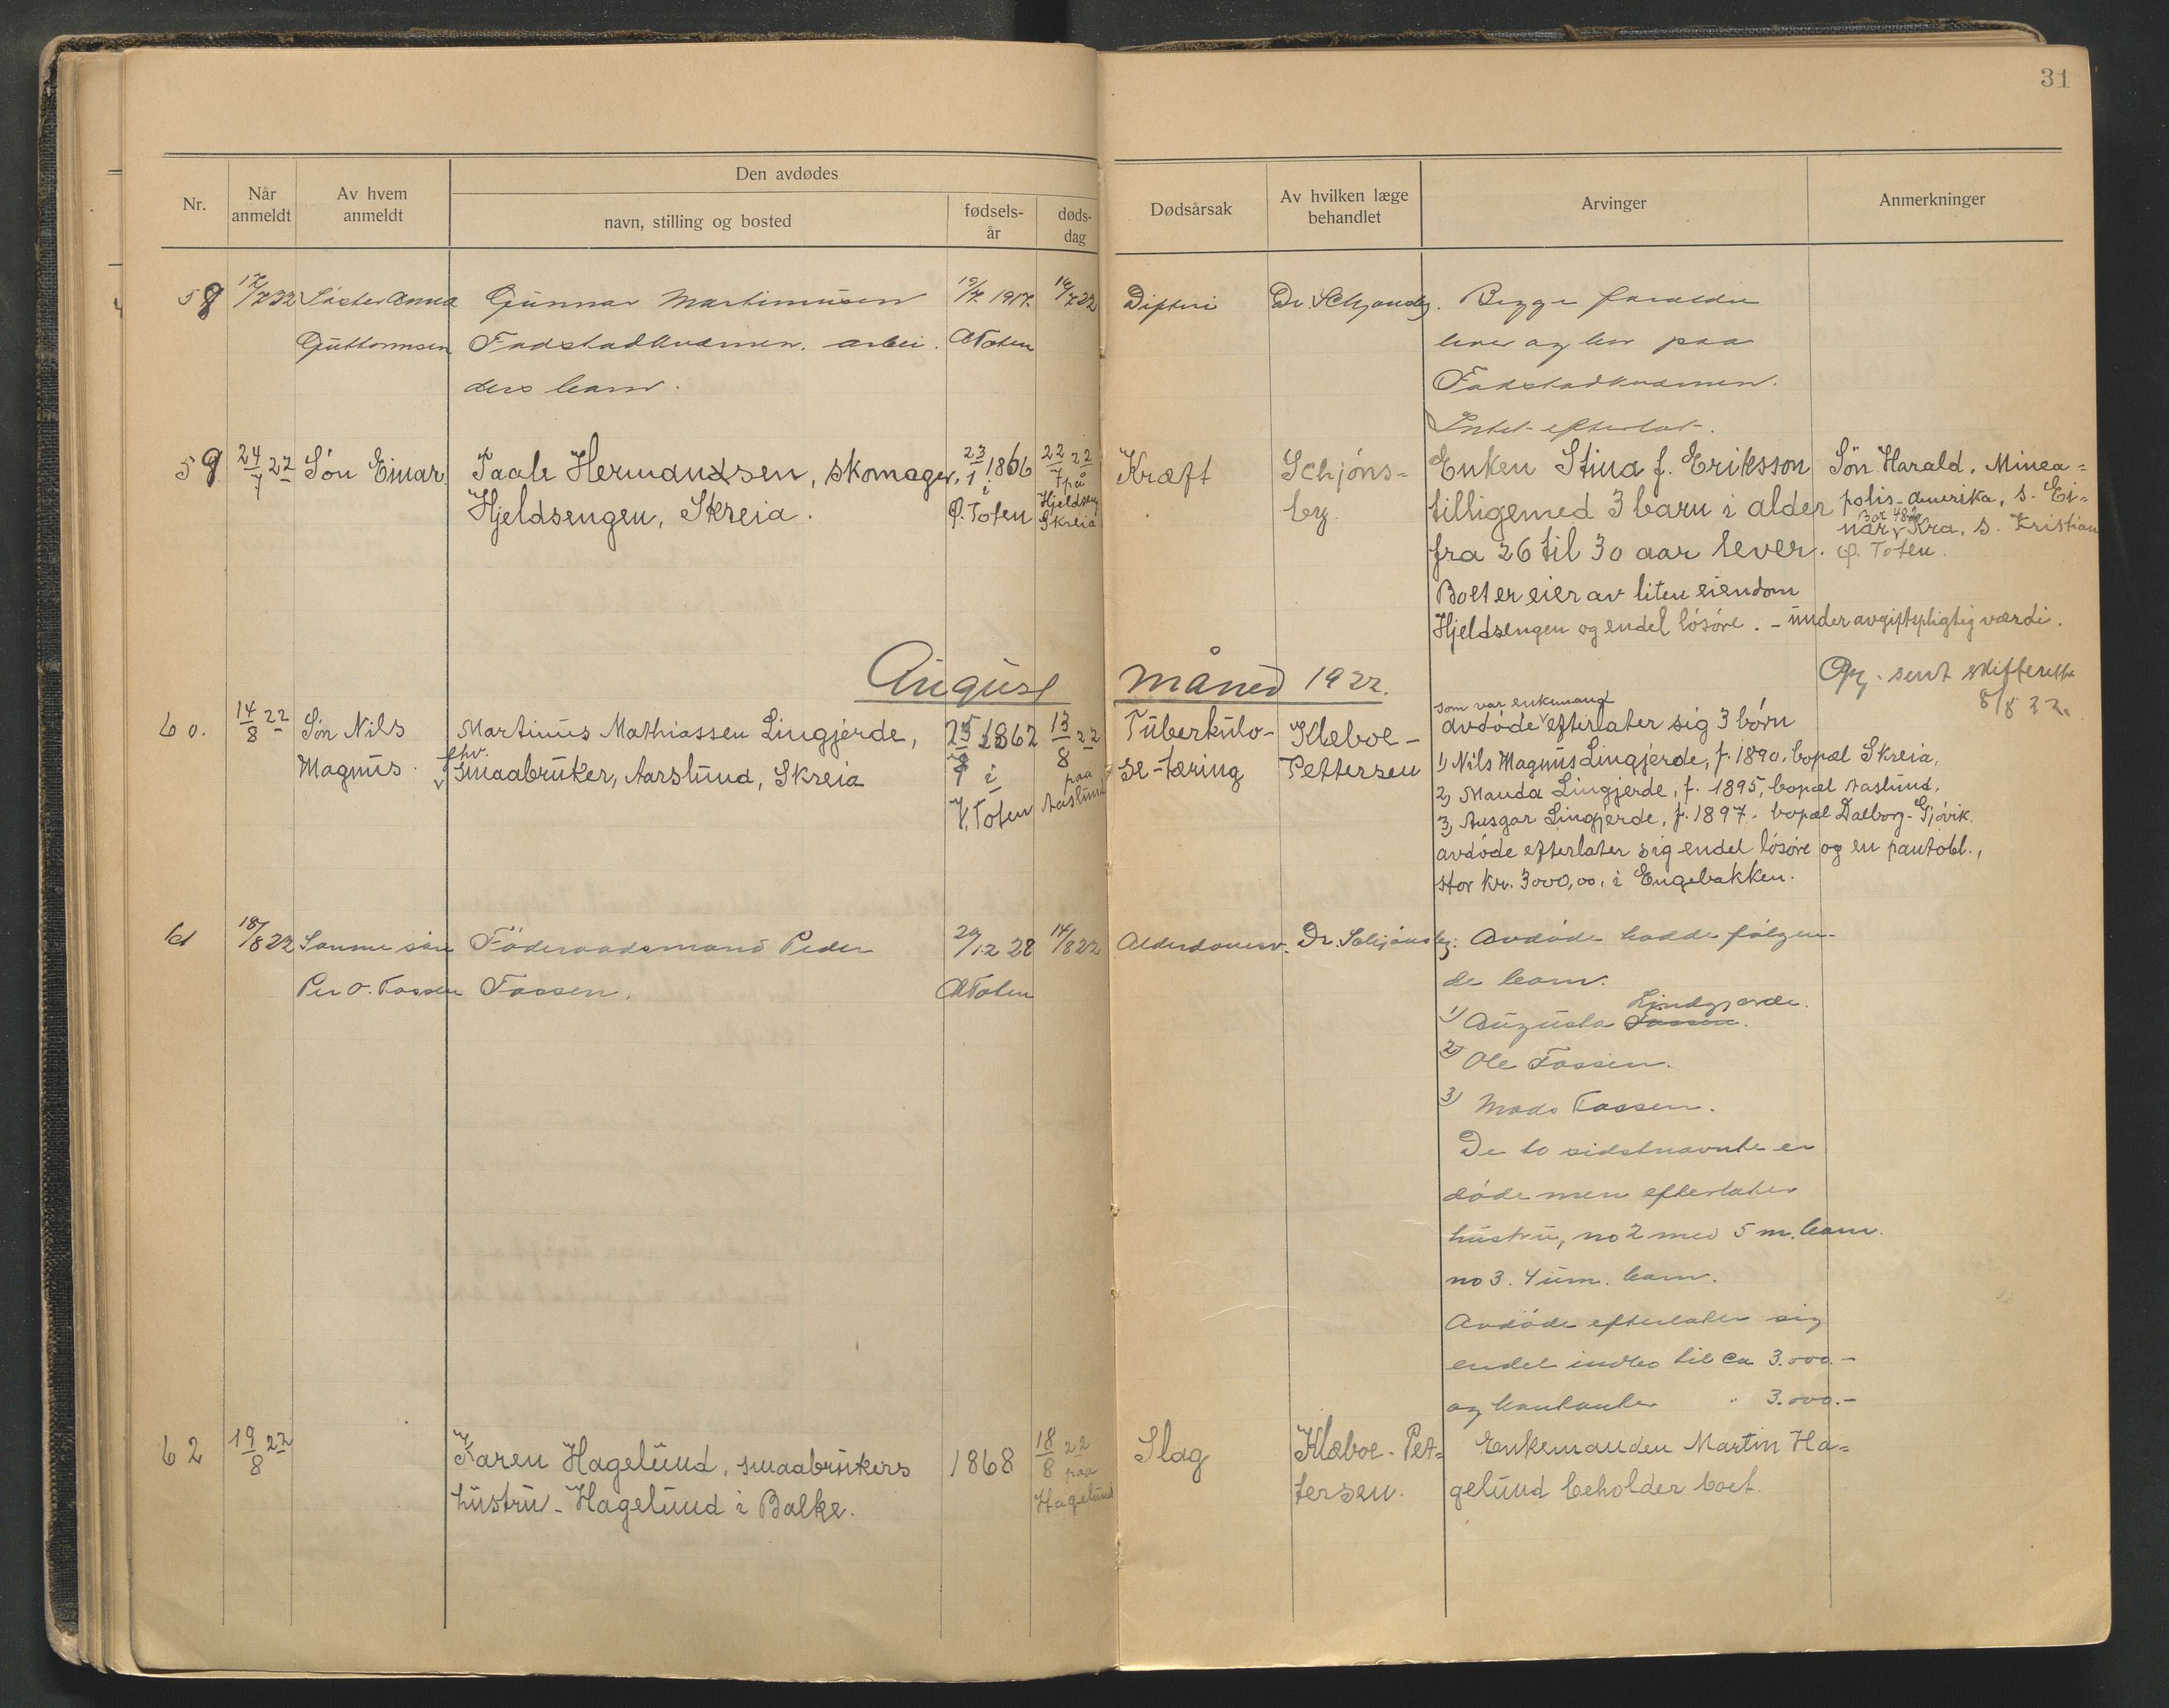 31
Nr.
Når anmeldt
Av hvem anmeldt
Den avdødes
navn, stilling og bosted
fødsels-
år
døds-
dag
Dødsårsak
Av hvilken læge behandlet
Arvinger
Anmerkninger
58 17/7 22 Søster Anna Gunnar Martinusen 1917. 22 Difteri Dr. Schjønsby. Begge forældre
Guttormsen arbei- Ø Toten lever og bor paa
ders barn.
Intet efterlat.
59 24/7 22 Søn Einar. Paale Hermandsen, skomager, 23/1 1866 22/7 22 Kræft Schjøns- Enken Stina f. Eriksson Søn Harald, Minea-
Hjeldsengen, Skreia. i Ø. Toten på Hjeldseng Skreia by. tilligemed 3 barn i alder polis-Amerika, s. Ei-
nar, Kra, s. Kristian
fra 26 til 30 aar lever. Ø. Toten.
Boet er eier av liten eiendom
Hjeldsengen og endel løsøre. - under avgiftspligtig værdi.
August måned 1922.
sent skifteretten
8/8 22.
som var enkemand
60. 14/8 22 Søn Nils Martinus Mathiassen Lingjerde, 1862 13/8 22 Tuberkulo- Klæboe- avdøde efterlater sig 3 børn
Magnus. fhv. Smaabruker, Aarslund, Skreia i paa se-tæring Pettersen 1) Nils Magnus Lingjerde, f. 1890, bopæl Skreia,
V. Toten Aaslund 2) Manda Lingjerde, f. 1895, bopæl Aaslund,
3) Ansgar Lingjerde, f. 1897. bopæl Dalborg-Gjøvik.
avdøde efterlater sig endel løsøre og en pantobl.,
stor kr. 3000,00, i Engebakken.
61 18/8 22 Samme søn Føderaadsmand Peder 20/12 28 14/8 22 Alderdomssv. Dr. Schjønsby. Avdøde hadde følgen-
Per O. Fossen Fossen. Ø Toten de barn.
Lindgjerde.
1) Augusta Fossen.
2) Ole Fossen.
3) Mads Fossen.
De to sidstnævnte er
døde men efterlater
hustru, no 2 med 5 m. barn.
no 3. 4 um. barn.
Avdøde efterlater sig
endel indbo til ca 3.000.-
og kontanter " 3.000.-
62 19/8 22 Karen Hagelund, smaabrukers 1868 18/8 22 Slag Klæboe-Pet- Enkemanden Martin Ha-
hustru - Hagelund i Balke. paa Hagelund tersen. gelund beholder boet.